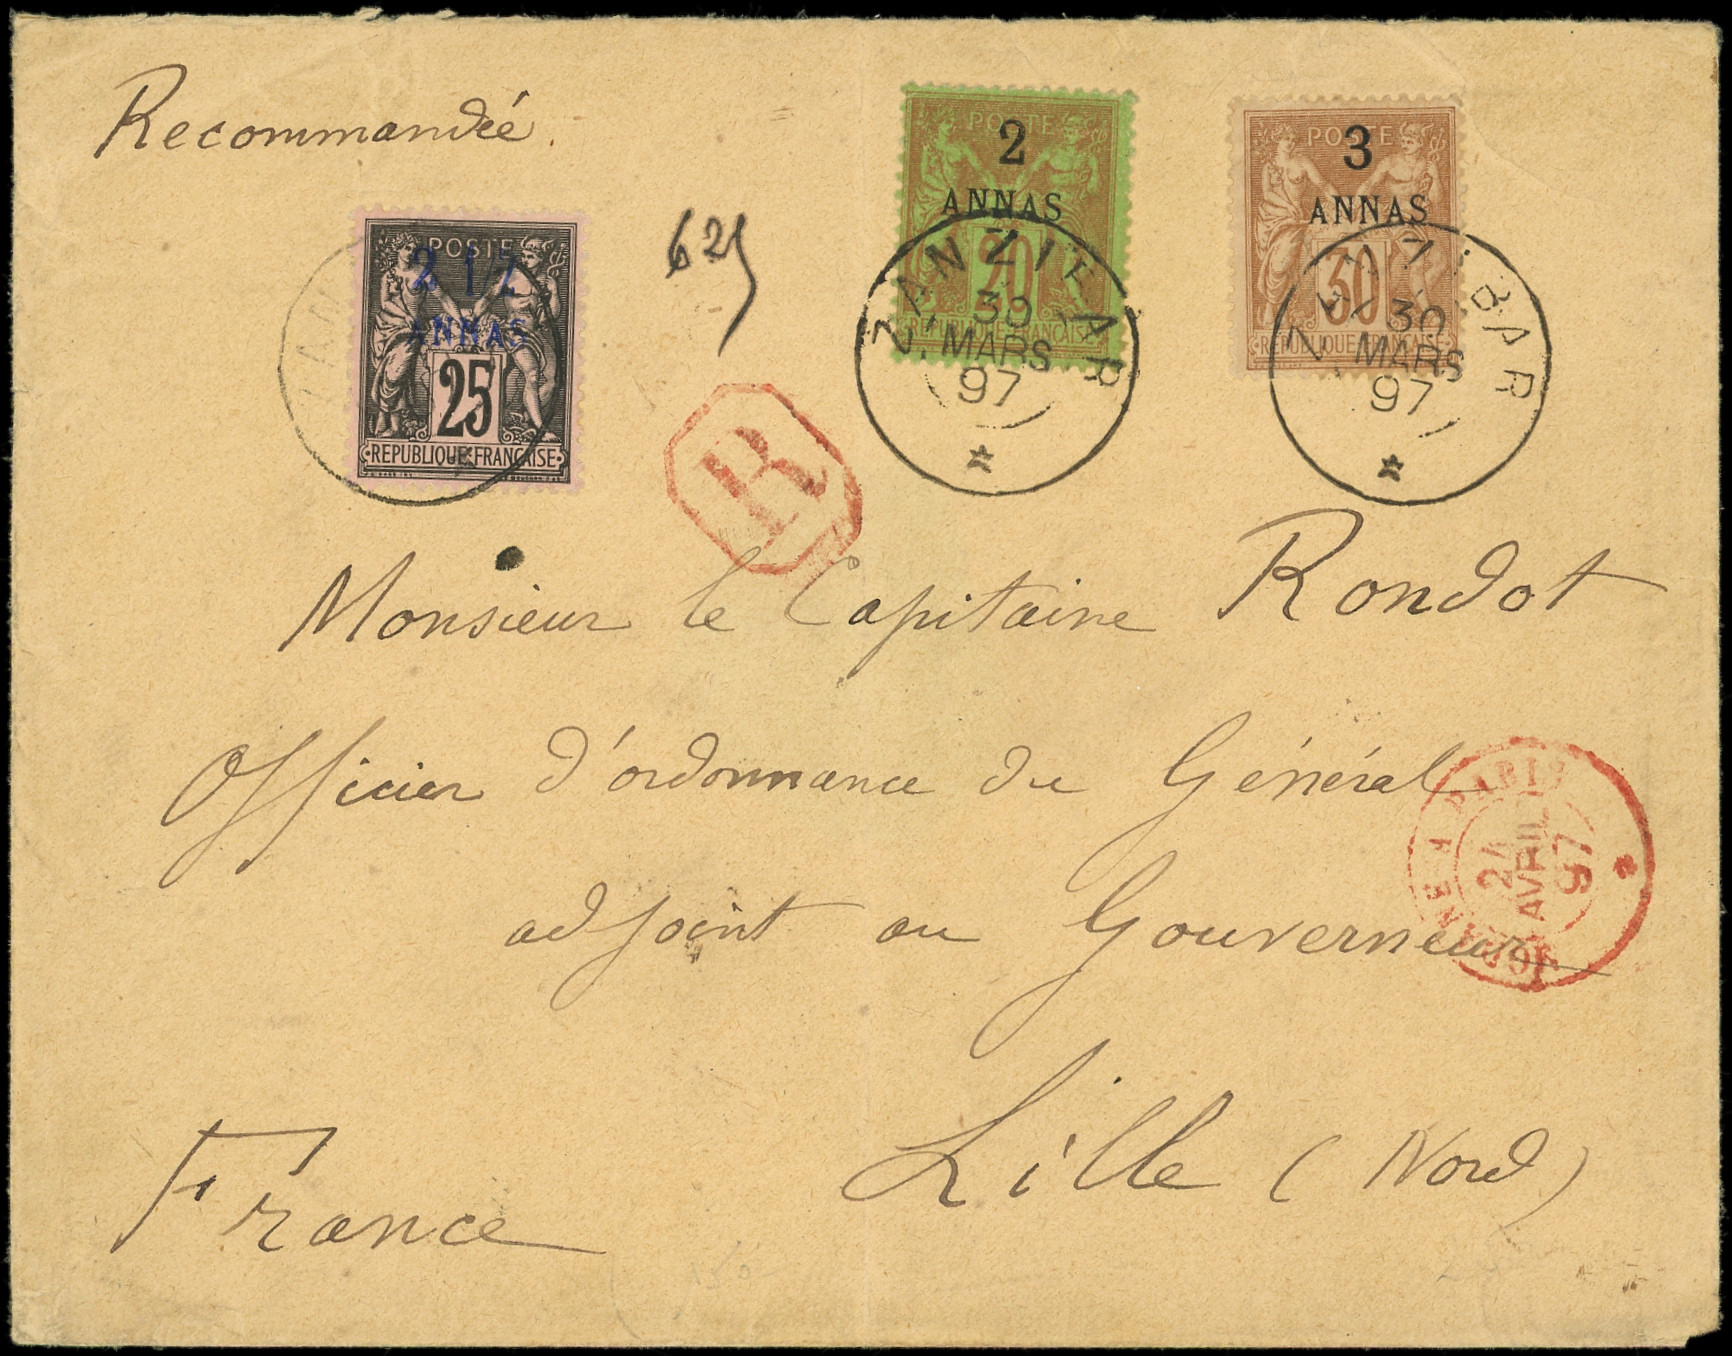 Recommandée.
POSTE
2 1/2
ANNAS
25
REPUBLIQUE FRANÇAISE
625
R
POSTE
2
ANNAS
20
REPUBLIQUE FRANÇAISE
ZANZIBAR
30
MARS
97
POSTE
3
ANNAS
30
REPUBLIQUE FRANÇAISE
ZANZIBAR
30
MARS
97
Monsieur le Capitaine Rondot
Officier d'ordonnance du Général
adjoint au Gouverneur
PARIS
AVRIL
97
Lille (Nord)
France